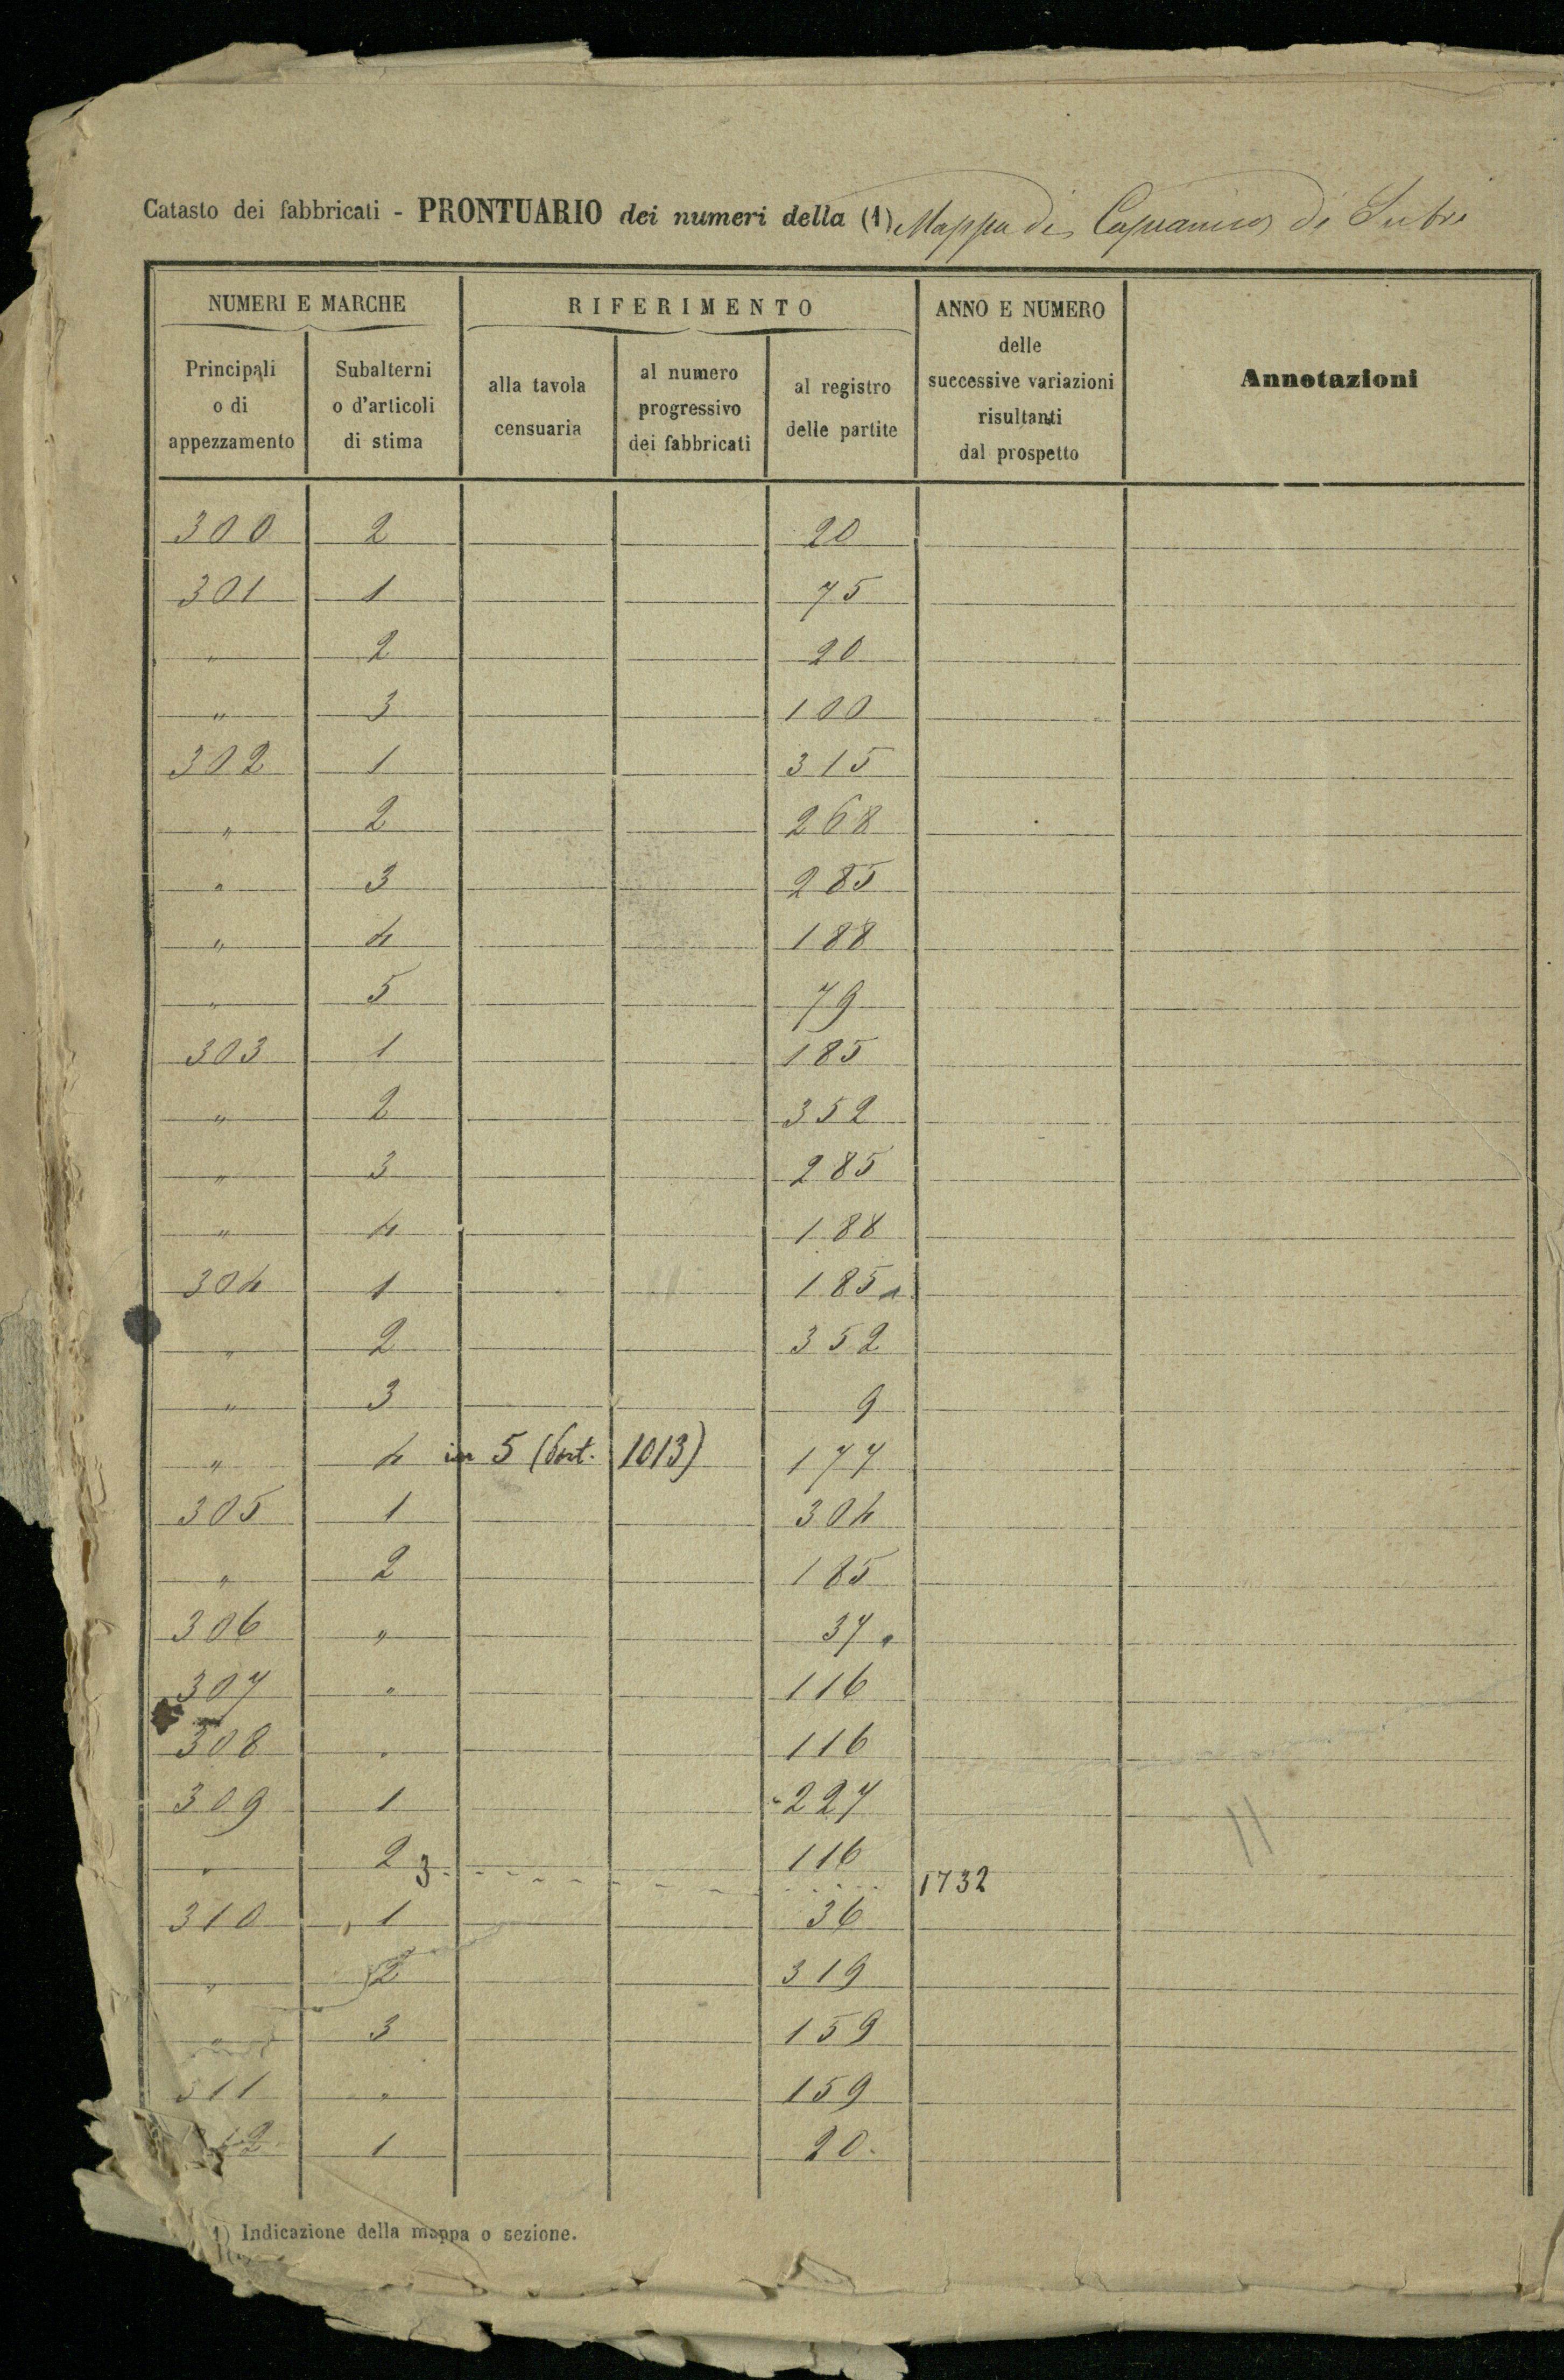 Catasto dei fabbricati - PRONTUARIO dei numeri della (1) Mappa di Capranica di Sutri
NUMERI E MARCHE
RIFERIMENTO
ANNO E NUMERO
delle
successive variazioni
risultanti
dal prospetto
Annotazioni
Principali
o di
appezzamento
Subalterni
o d'articoli
di stima
alla tavola
censuaria
al numero
progressivo
dei fabbricati
al registro
delle partite
300 2 20
301 1 75
" 2 20
" 3 100
302 1 315
" 2 268
" 3 285
" 4 188
" 5 79
303 1 185
" 2 352
" 3 285
" 4 188
304 1 185
" 2 352
" 3 9
" 4 in 5 ( 1013) 177
305 1 304
" 2 185
306 " 37
307 " 116
308 " 116
309 1 227
" 2 116
3 1732
310 1 36
" 2 319
" 3 159
311 " 159
12 1 20
1) Indicazione della mappa o sezione.